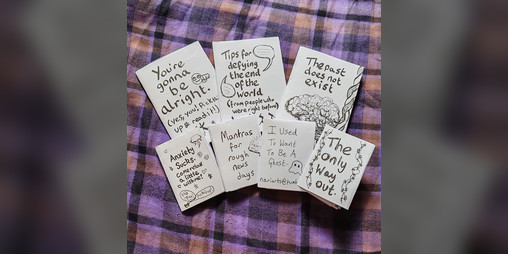 You're
gonna
be
alright.
(yes, you! Pick it
up & read it!)
Tips for
defying
the end
of the
world
(from people who
were right before)
The past
does not
exist
Anxiety
Sucks.
commiserate
a little
with me!
Mantras
for
rough
news
days
I Used
To Want
To Be A
Ghost.
The
only
way
out.